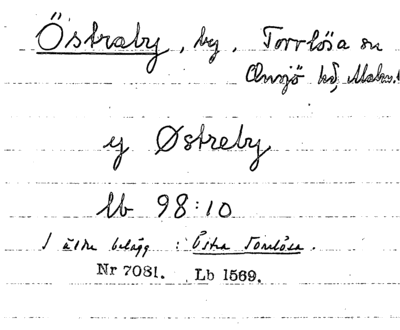 Östraby, by, Torrlösa sn
Onsjö hd, Malm.
ej Østreby
lb 98:10
I äldre belägg : Östra Torrlösa.
Nr 7081. Lb 1569.